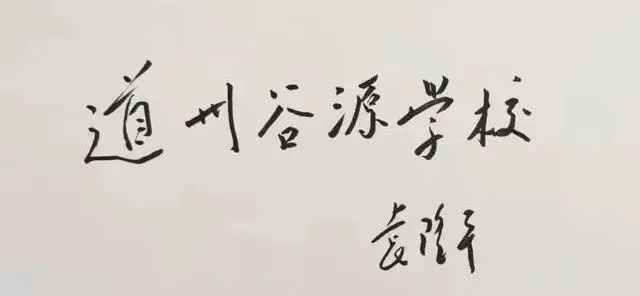 道州谷源学校
袁隆平